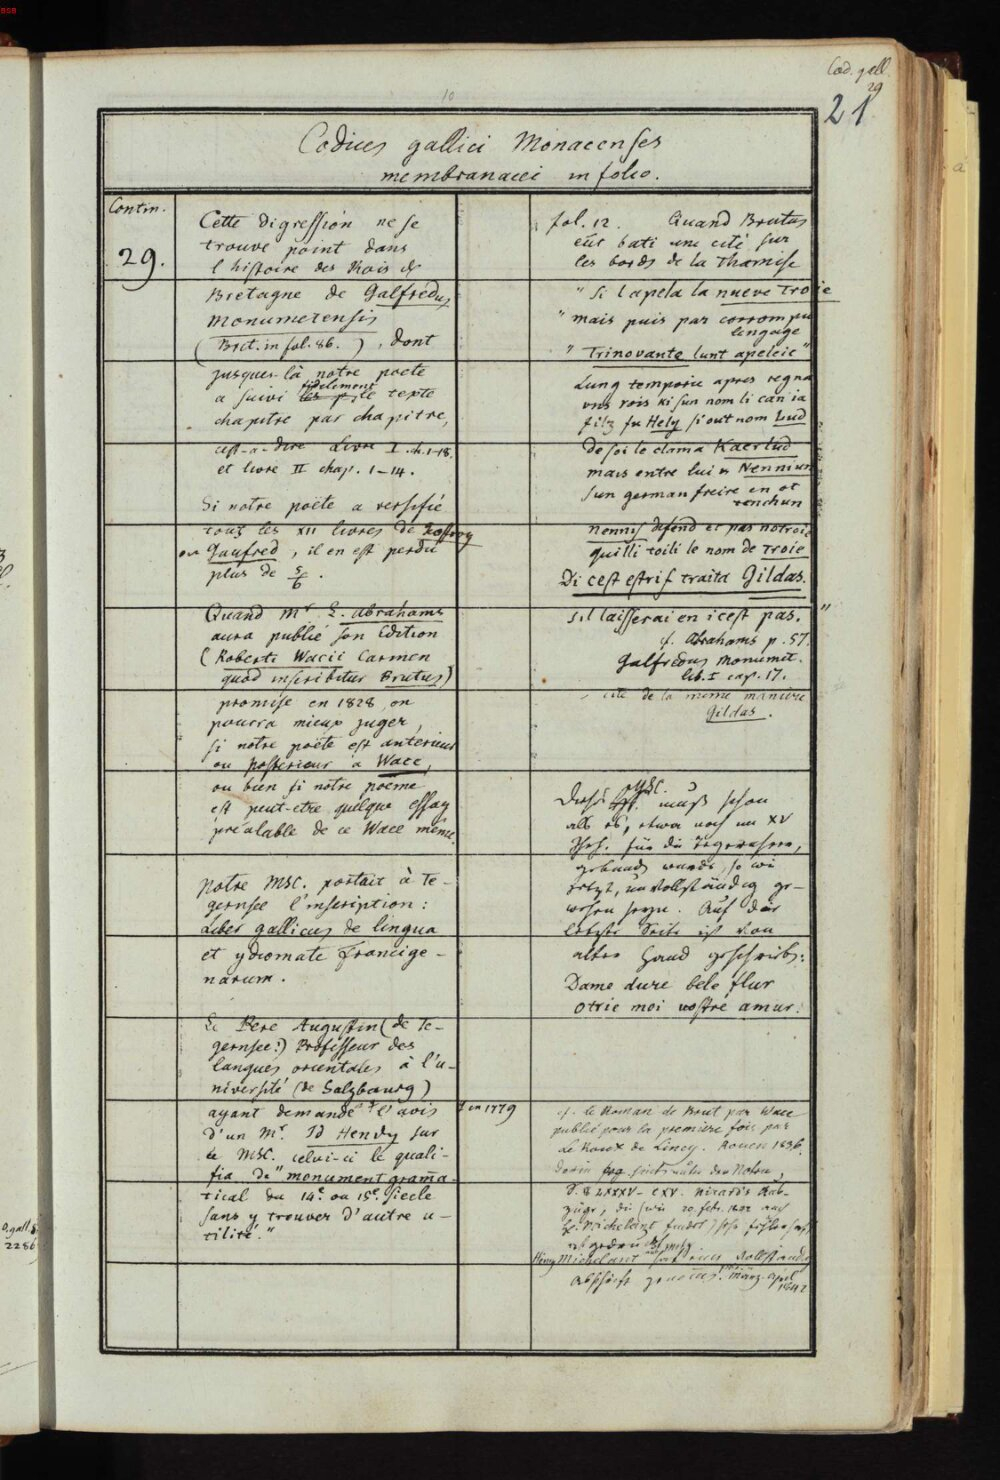 Cod. gall.
29
21
10
Codices gallici Monacenses
membranacei in folio.
Contin.
29.
Cette digression ne se
trouve point dans
l'histoire des Rois de
Bretagne de Galfredus
Monumetensis
(Brit. in fol. 86. ), dont
jusques-là notre poete
a suivi fidelement le texte
chapitre par chapitre,
cest-a-dire Livre I. ch. 1-18.
et livre II chap. 1-14.
Si notre poëte a versifié
tous les XII livres de
ou Gaufred, il en est perdu
plus de 5/6.
Quand Mr. L. Abrahams
aura publié son Edition
(Roberti Wacii Carmen
quod inscribitur Brutus)
promise en 1828, on
pourra mieux juger,
si notre poëte est anterieur
ou posterieur a Wace,
ou bien si notre poeme
est peut-etre quelque essay
préalable de ce Wace même.
Notre MSC. portait à Te-
gernsee l'inscription:
Liber gallicus de lingua
et ydiomate francige-
narum.
Le Pere Augustin (de Te-
gernsee?) Professeur des
langues orientales à l'u-
niversité (de Salzbourg)
ayant demandé l'avis
en 1779
d'un Mr. Td Hendy sur
ce MSC. celui-ci le quali-
fia de "monument grama-
tical du 14e. ou 15e. siecle
sans y trouver d'autre u-
tilité."
fol. 12. Quand Brutus
eut bati une cité sur
les bords de la Thamise
" Si lapela la nueve Troie
" mais puis par corrompu
lengage
" Trinovante lunt apeleie"
Lung tempoire apres regna
uns rois ki sun nom li can ia
filz fu Hely si out nom Lud
De soi le clama Kaerlud
mais entre lui e Nennium
sun german freire en ot
tenchun
Nennis defend et pas notroie
quilli toili le nom de Troie
Di cest estrif traita Gildas.
sil laisserai en icest pas. "
cf. Abrahams p. 57.
Galfredus Monumet.
lib. I cap. 17.
cite de la meme maniere
Gildas.
Diese MSC. muß schon
als es, etwa noch im XV
Jhh. für die Tegernseer,
gebunden wurde, so wie
jetzt, unvollständig ge-
wesen seyn. Auf der
letzten Seite ist von
alter Hand geschrieben:
Dame dure bele flur
otrie moi vostre amur.
cf. le Roman de Brut par Wace
publié pour la premiere fois par
Le Roux de Lincy. Rouen 1836.
S. LXXXV-CXV.
Michelant
vollständig
Abschrift genommen. März-April
1842